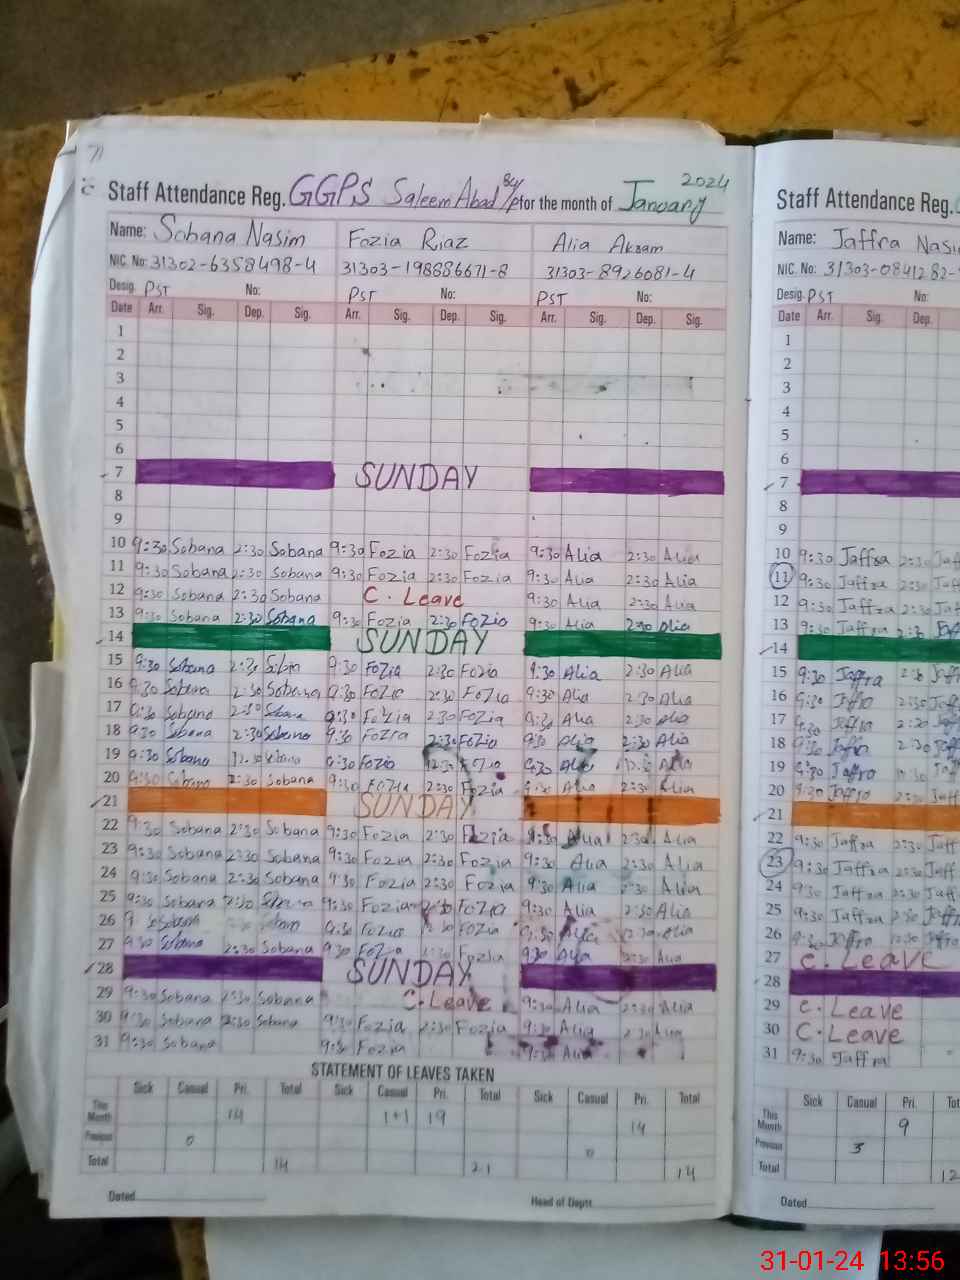 Staff Attendance Reg. GGPS Saleem Abad for the month of January 2024
Name: Sobana Nasim Fozia Riaz Alia Akram
NIC. No: 31302-6358498-4 31303-198886671-8 31303-8926081-4
Desig. PST No: PST No: PST No:
Date Arr. Sig. Dep. Sig. Arr. Sig. Dep. Sig. Arr. Sig. Dep. Sig.
1
2
3
4
5
6
7 SUNDAY
8
9
10 9:30 Sobana 2:30 Sobana 9:30 Fozia 2:30 Fozia 9:30 Alia 2:30 Alia
11 9:30 Sobana 2:30 Sobana 9:30 Fozia 2:30 Fozia 9:30 Alia 2:30 Alia
12 9:30 Sobana 2:30 Sobana C. Leave 9:30 Alia 2:30 Alia
13 9:30 Sobana 2:30 Sobana 9:30 Fozia 2:30 Fozia 9:30 Alia 2:30 Alia
14 SUNDAY
15 9:30 Sobana 9:30 Fozia 2:30 Fozia 9:30 Alia 2:30 Alia
16 9:30 Sobana 2:30 Sobana 9:30 Fozia 2:30 Fozia 9:30 Alia 2:30 Alia
17 9:30 Sobana 2:30 Sobana 9:30 Fozia 2:30 Fozia 9:30 Alia 2:30 Alia
18 9:30 Sobana 2:30 Sobana 9:30 Fozia 2:30 Fozia 9:30 Alia 2:30 Alia
19 9:30 Sobana 12:30 9:30 Fozia 12:30 Fozia 9:30 Alia 12:30 Alia
20 9:30 Sobana 2:30 Sobana 9:30 Fozia 2:30 Fozia 9:30 Alia 2:30 Alia
21 SUNDAY
22 9:30 Sobana 2:30 Sobana 9:30 Fozia 2:30 Fozia 9:30 Alia 2:30 Alia
23 9:30 Sobana 2:30 Sobana 9:30 Fozia 2:30 Fozia 9:30 Alia 2:30 Alia
24 9:30 Sobana 2:30 Sobana 9:30 Fozia 2:30 Fozia 9:30 Alia 2:30 Alia
25 9:30 Sobana 2:30 9:30 Fozia 2:30 Fozia 9:30 Alia 2:30 Alia
26 Sobana Sobana 9:30 Fozia Fozia 9:30 Alia 12:30 Alia
27 9:30 Sobana 2:30 Sobana 9:30 Fozia 2:30 Fozia 9:30 Alia 2:30 Alia
28 SUNDAY
29 9:30 Sobana 2:30 Sobana C. Leave 9:30 Alia 2:30 Alia
30 9:30 Sobana 2:30 Sobana 9:30 Fozia 2:30 Fozia 9:30 Alia 2:30 Alia
31 9:30 Sobana 9:30 Fozia 9:30 Alia
STATEMENT OF LEAVES TAKEN
Sick Casual Pri. Total Sick Casual Pri. Total Sick Casual Pri. Total
This Month 14 1+1 19 14
Previous 0 0
Total 14 21 14
Dated Head of Deptt.
Staff Attendance Reg.
Name: Jaffra Nasi
NIC. No: 31303-0841282-
Desig. PST No:
Date Arr. Sig. Dep.
1
2
3
4
5
6
7
8
9
10 9:30 Jaffra 2:30 Jaff
11 9:30 Jaffra 2:30 Jaff
12 9:30 Jaffra 2:30 Jaff
13 9:30 Jaffra 2:30
14
15 9:30 Jaffra 2:30
16 9:30 Jaffra 2:30
17 9:30 Jaffra 2:30
18 9:30 Jaffra 2:30
19 9:30 Jaffra
20 9:30 Jaffra 2:30 Jaff
21
22 9:30 Jaffra 2:30 Jaff
23 9:30 Jaffra 2:30 Jaff
24 9:30 Jaffra 2:30 Jaff
25 9:30 Jaffra 2:30
26 9:30 Jaffra 12:30
27 C. Leave
28
29 C. Leave
30 C. Leave
31 9:30 Jaffra
Sick Casual Pri. Tot
This Month 9
Previous 3
Total 12
Dated
31-01-24 13:56